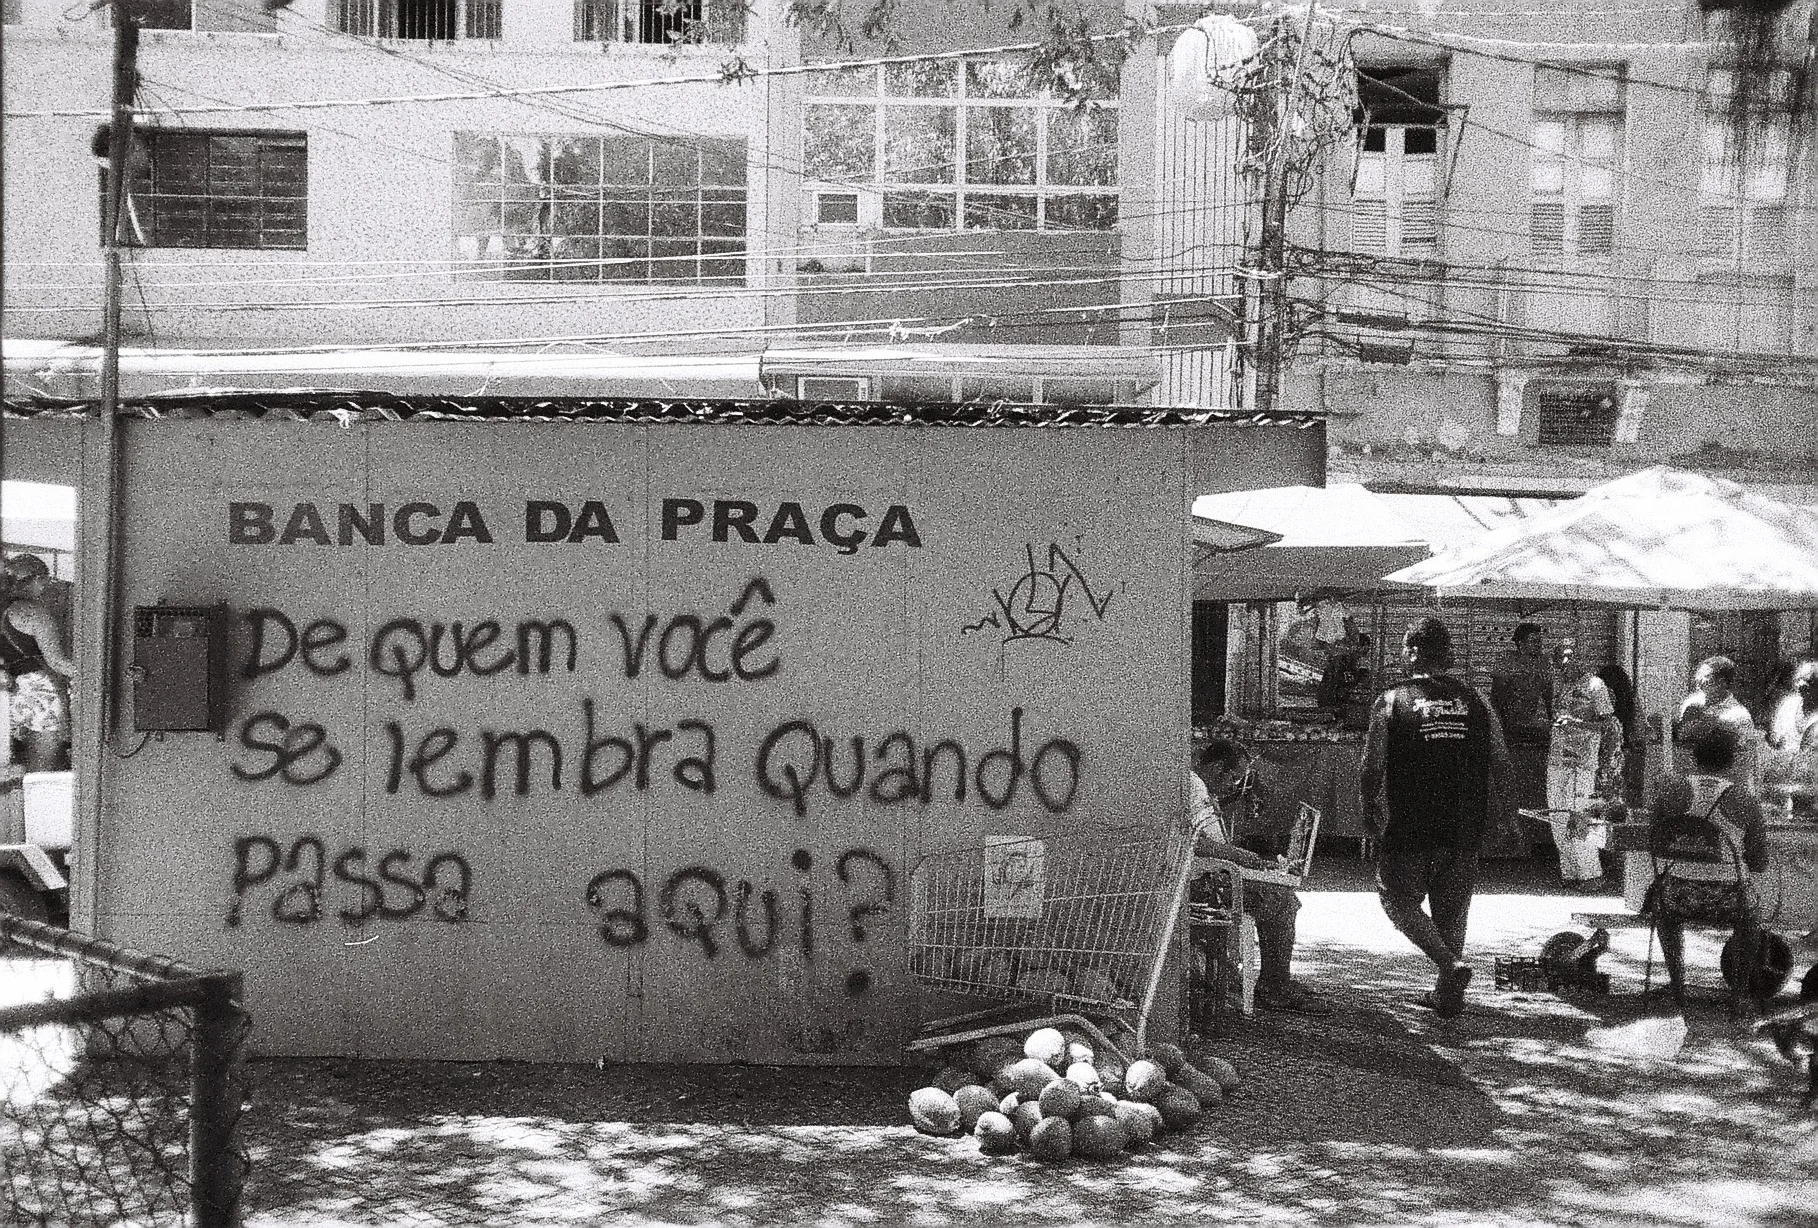 BANCA DA PRAÇA
De quem você
se lembra quando
passa aqui?